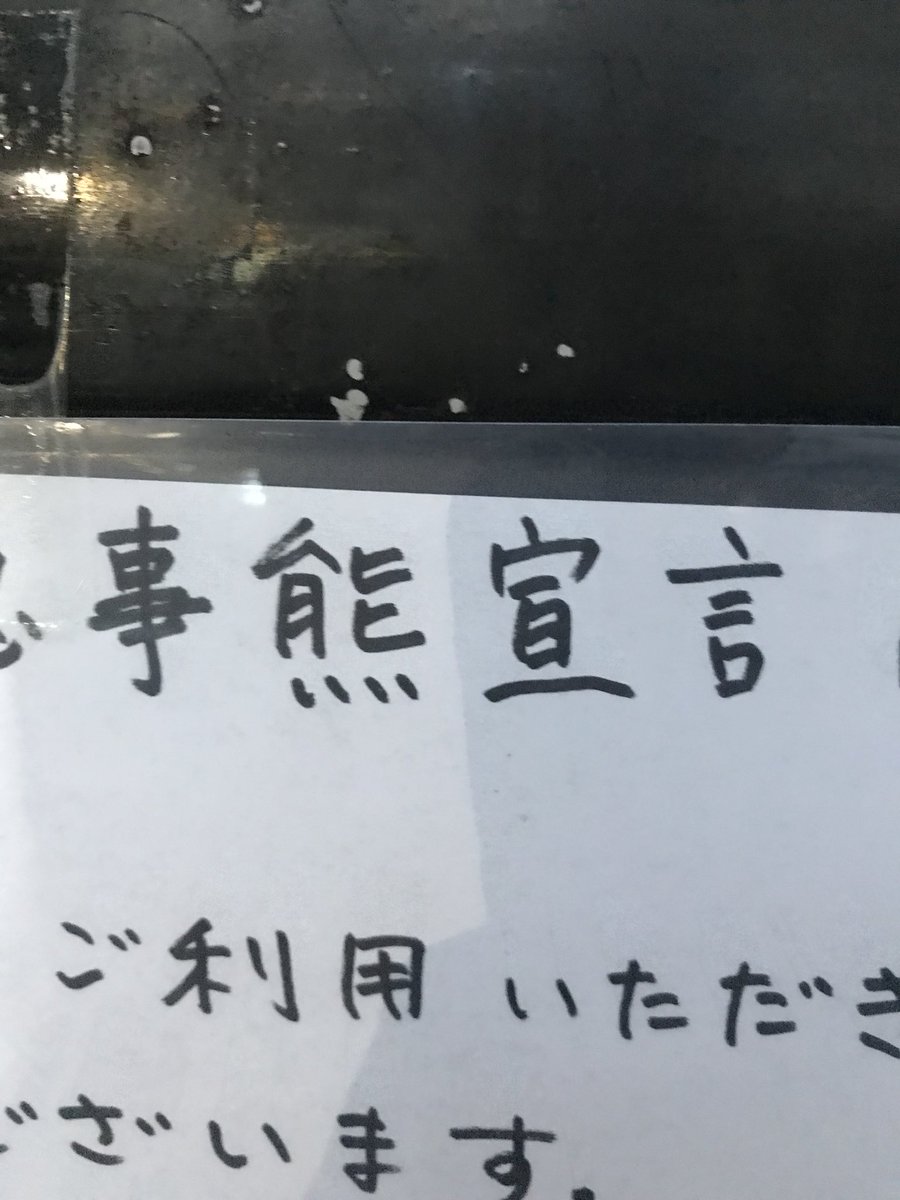 事熊宣言
ご利用いただき
ございます.